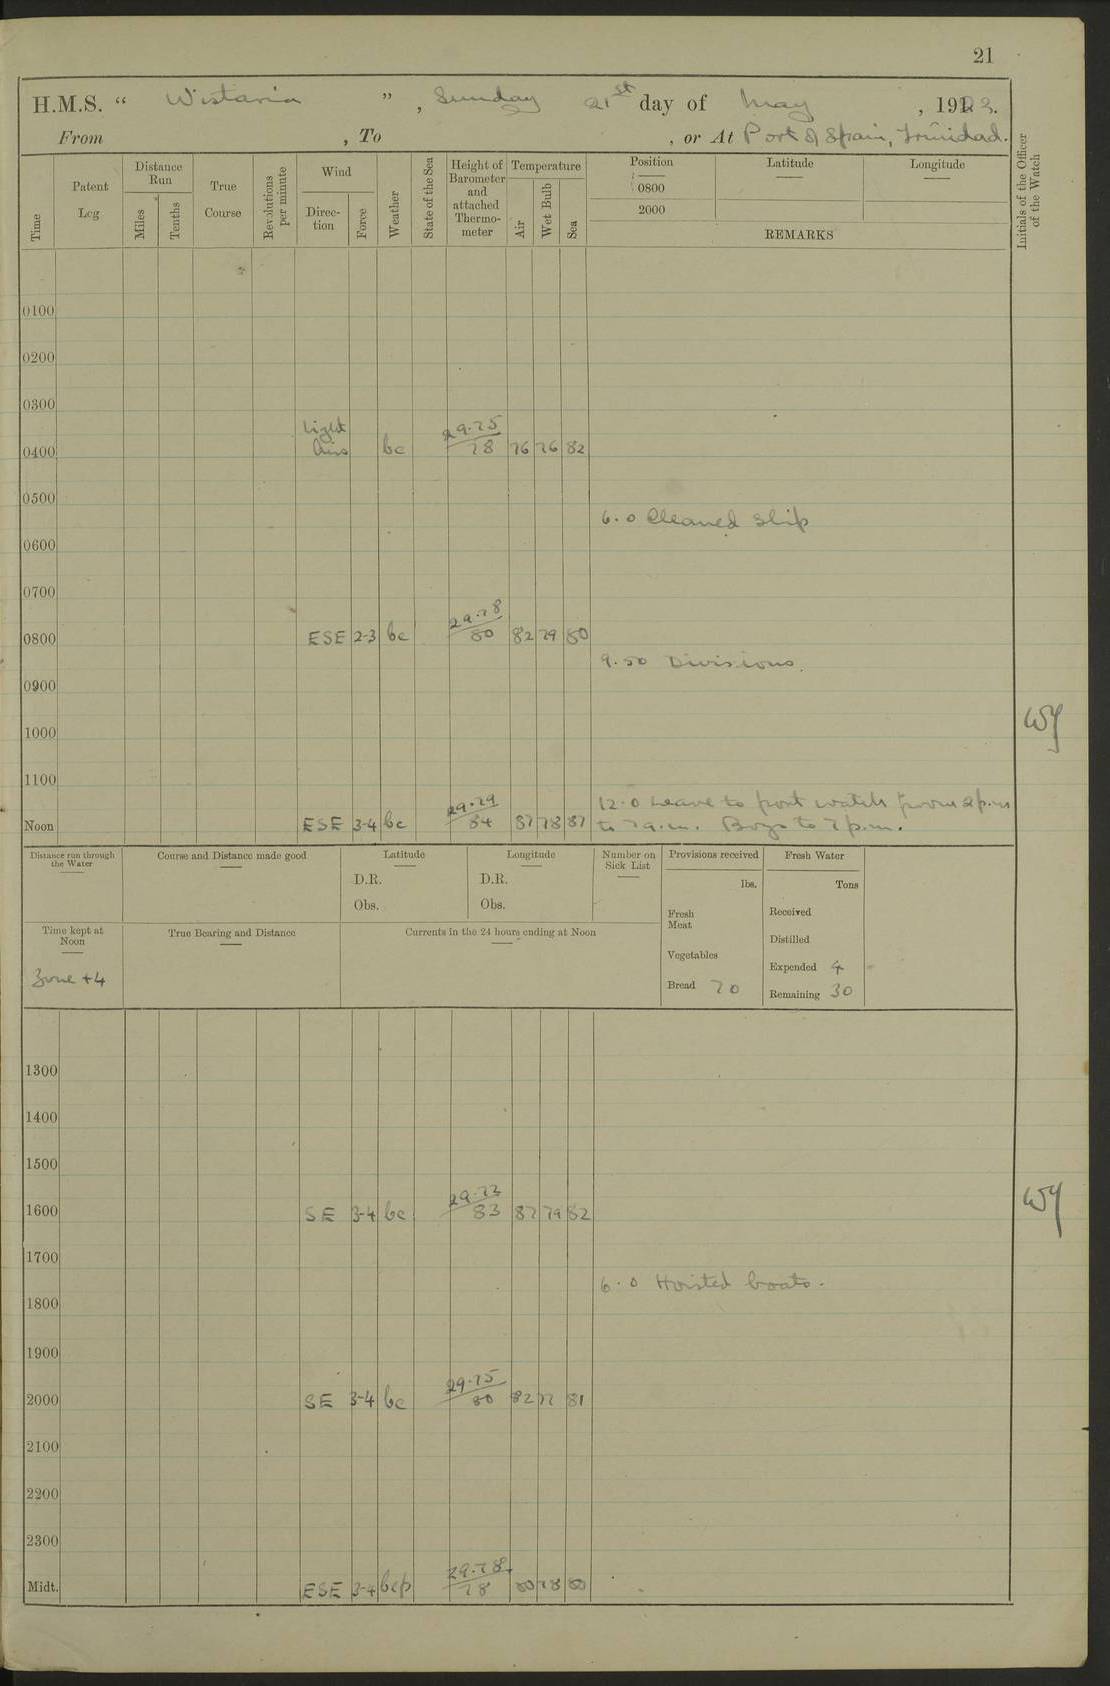 21
H.M.S. “ Wistaria ” , Sunday 21st day of May , 1922.
From , To , or At Port of Spain, Trinidad.
Time
Patent Log
Distance Run
Miles
Tenths
True Course
Revolutions per minute
Wind
Direction
Force
Weather
State of the Sea
Height of Barometer and attached Thermometer
Temperature
Air
Wet Bulb
Sea
Position
0800
2000
Latitude
Longitude
REMARKS
Initials of the Officer of the Watch
0100
0200
0300
Light 29.75
0400 Airs bc 78 76 76 82
0500
6.0 Cleaned Ship
0600
0700
29.78
0800 ESE 2-3 bc 80 82 79 80
9.50 Divisions.
0900
1000
1100
29.79 12.0 Leave to port watch from 2 p.m.
Noon ESE 3-4 bc 84 87 78 87 to 7 a.m. Boys to 7 p.m.
Distance run through the Water
Course and Distance made good
Latitude
D.R.
Obs.
Longitude
D.R.
Obs.
Number on Sick List
Provisions received
lbs.
Fresh Meat
Vegetables
Bread 70
Fresh Water
Tons
Received
Distilled
Expended 4
Remaining 30
Time kept at Noon
Zone +4
True Bearing and Distance
Currents in the 24 hours ending at Noon
1300
1400
1500
29.73
1600 SE 3-4 bc 83 87 79 82
1700
6.0 Hoisted boats.
1800
1900
29.75
2000 SE 3-4 bc 80 82 77 81
2100
2200
2300
29.78
Midt. ESE 3-4 bcp 78 80 78 80